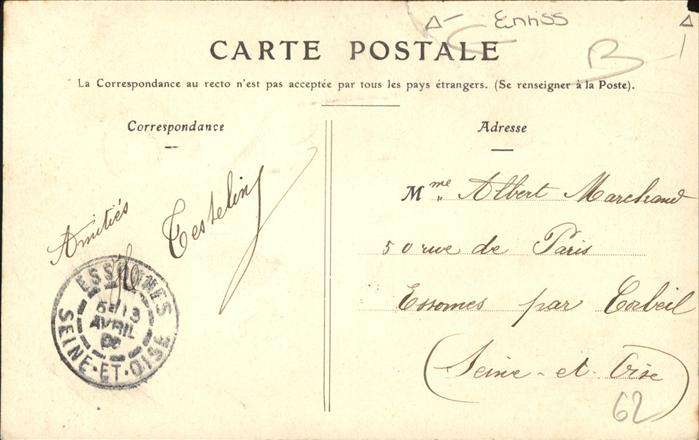 Enniss
B
62
CARTE POSTALE
La Correspondance au recto n'est pas acceptée par tous les pays étrangers. (Se renseigner à la Poste).
Correspondance
Amitiés
Testelin
ESSONNES
13
AVRIL
SEINE-ET-OISE
Adresse
Mme Albert Marchand
50 rue de Paris
Essonnes par Corbeil
(Seine-et-Oise)